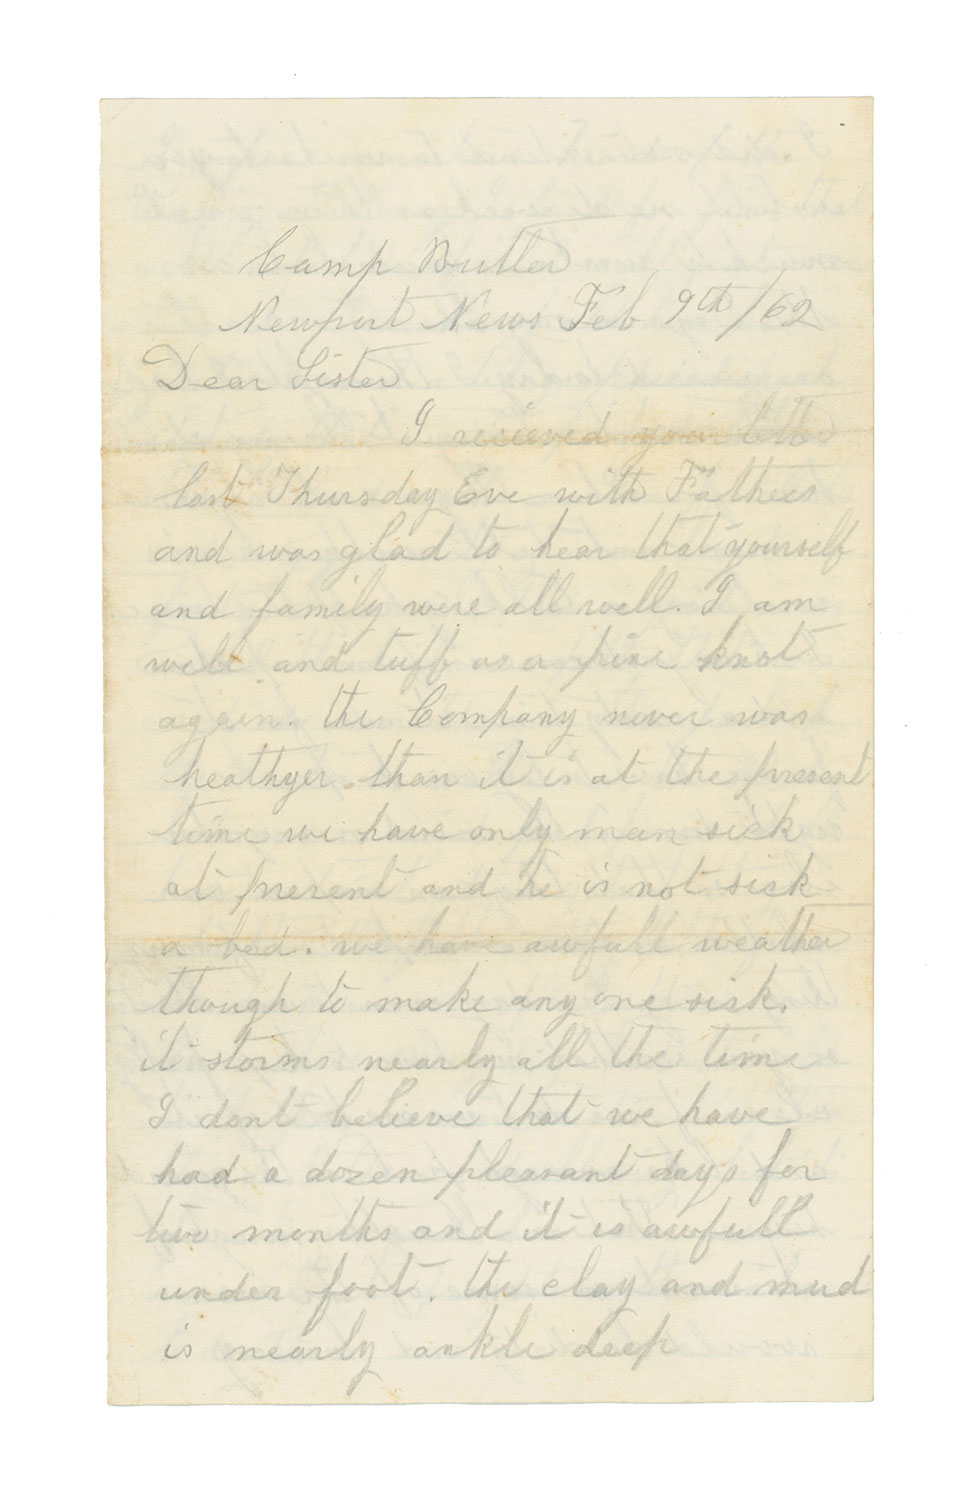 Camp Butler
Newport News Feb 9th/62
Dear Sister
I recieved your letter
last Thursday Eve with Fathers
and was glad to hear that yourself
and family were all well. I am
well and tuff as a pine knot
again. the Company never was
heathyer than it is at the present
time we have only man sick
at present and he is not sick
a bed. we have awfull weather
though to make any one sick.
it storms nearly all the time
I dont believe that we have
had a dozen pleasant days for
two months and it is awfull
under foot. the clay and mud
is nearly ankle deep